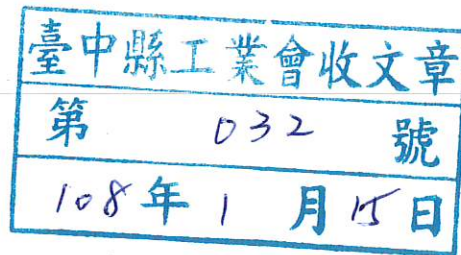 臺中縣工業會收文章
第 032 號
108年1月15日